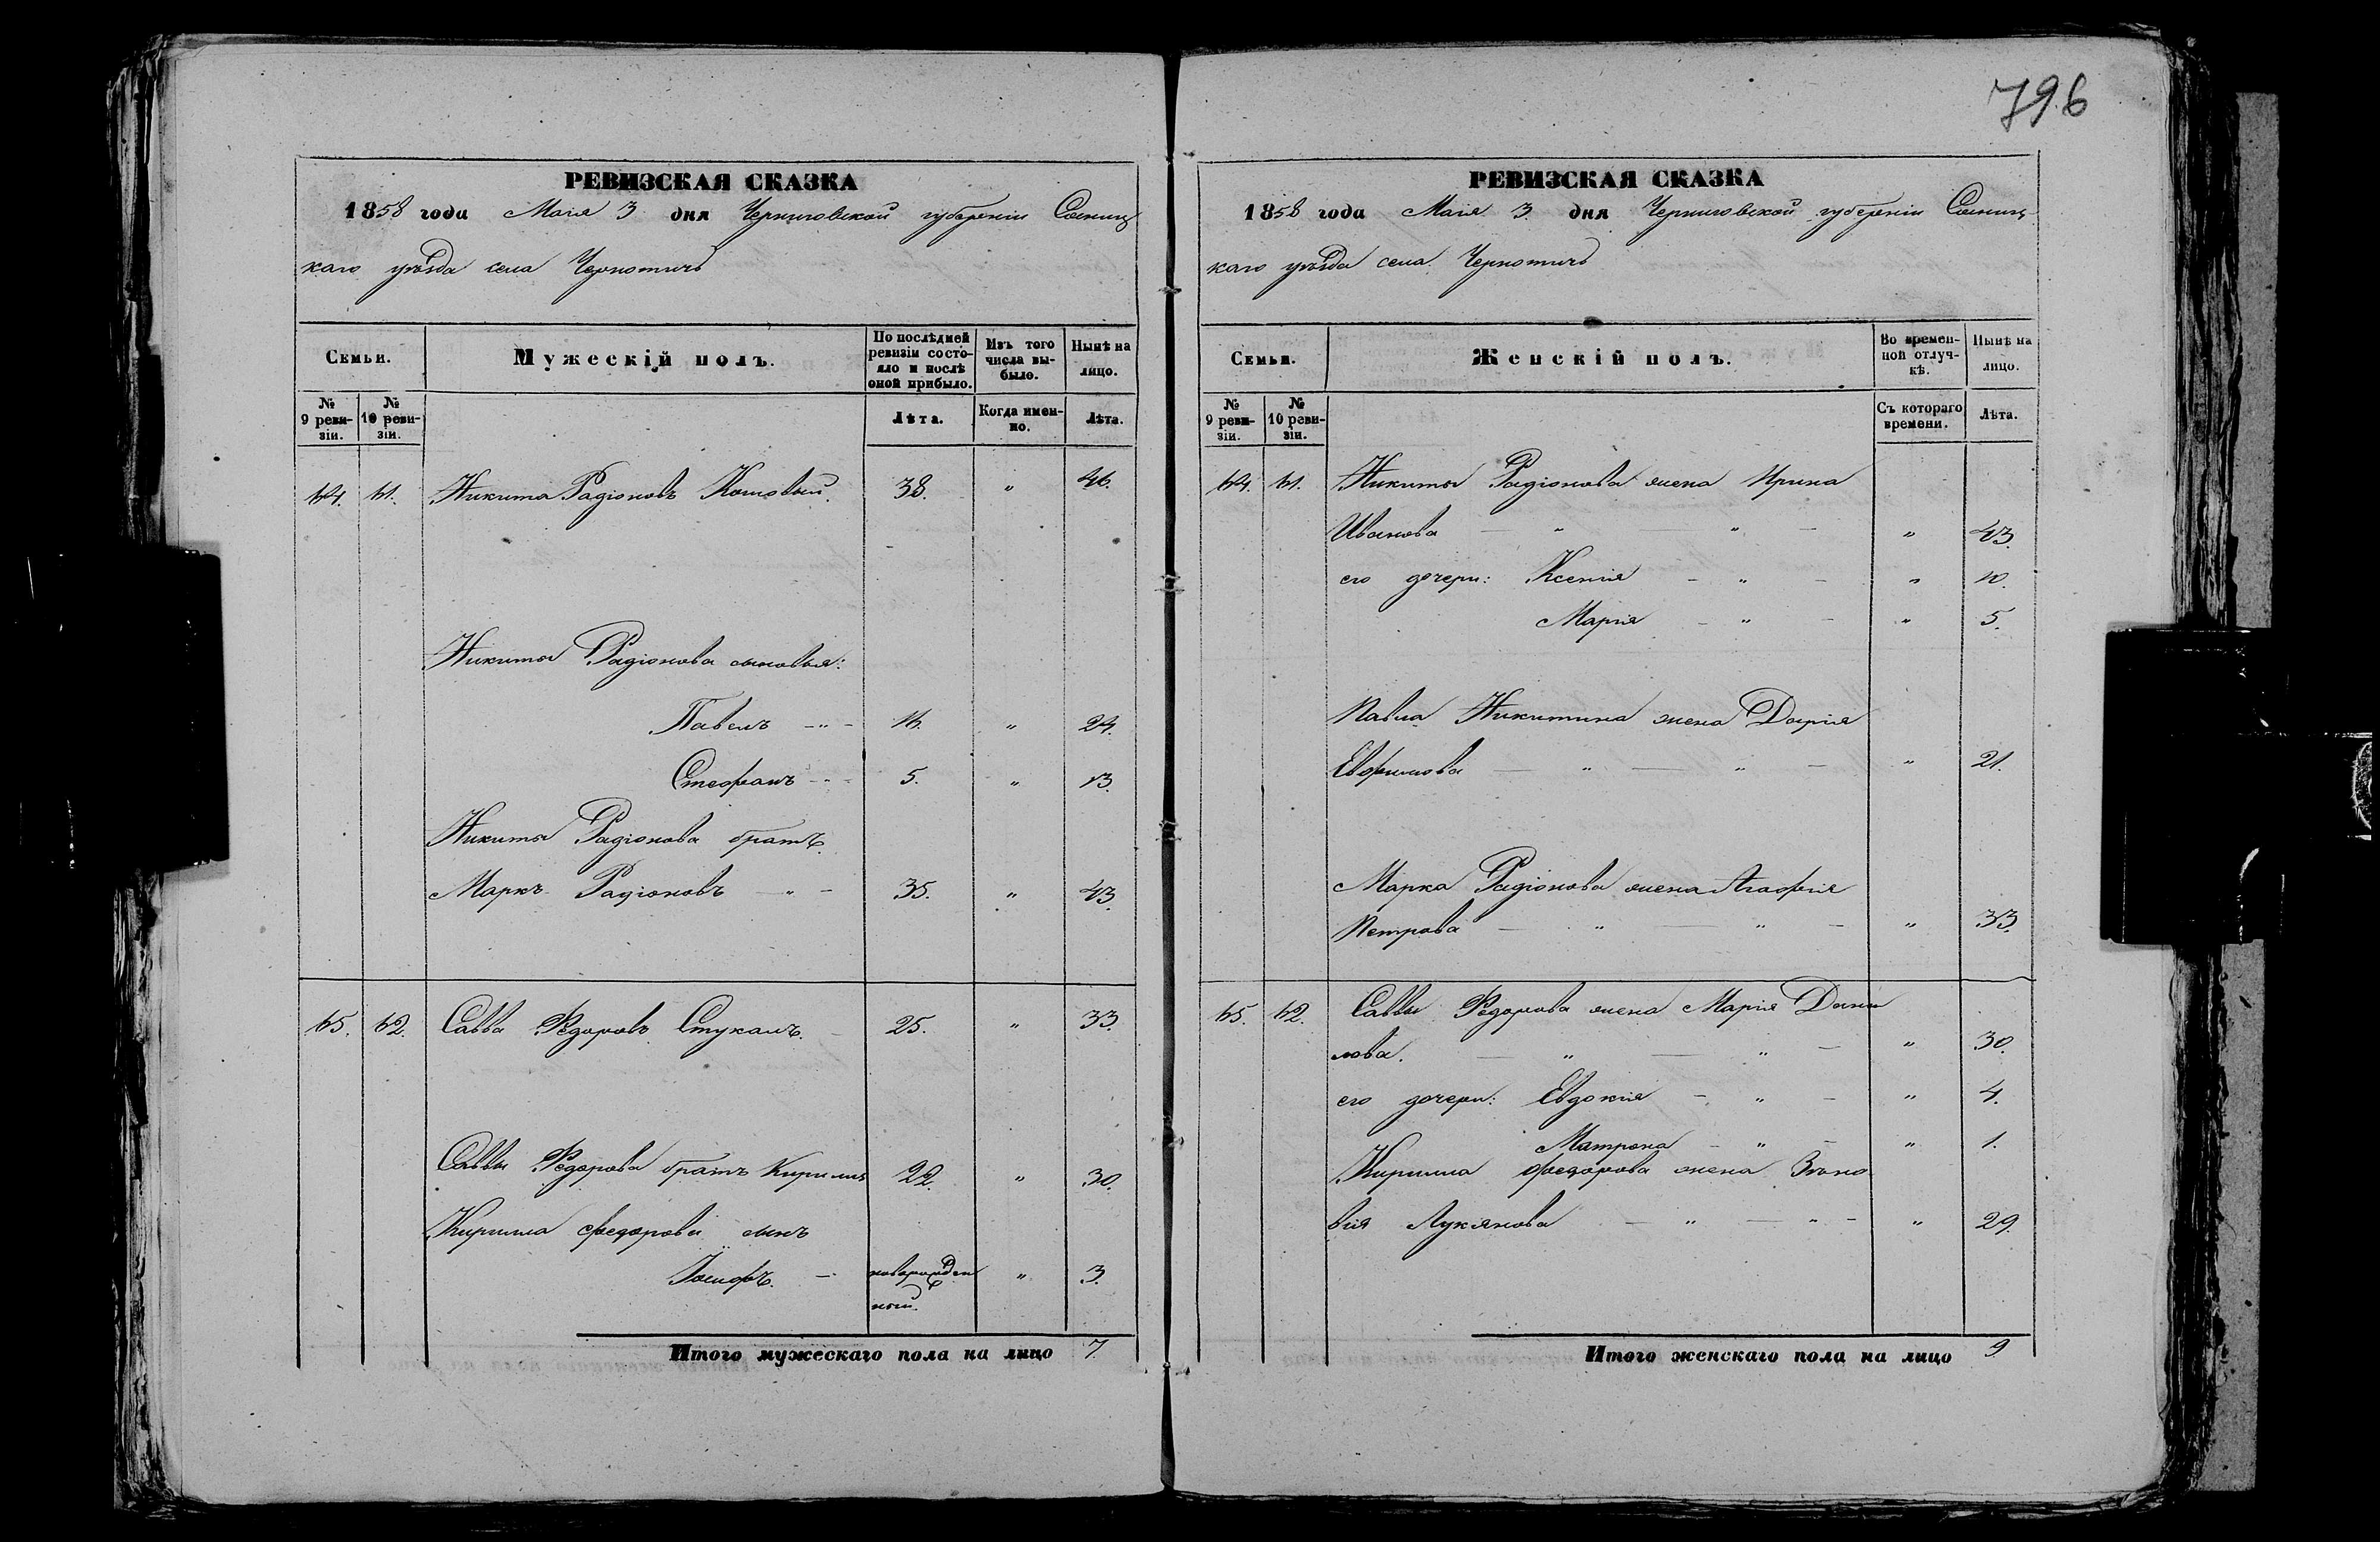 796
РЕВИЗСКАЯ СКАЗКА
1858 года Маія 3 дня Черниговской губерніи Сосниц
каго уѣзда села Чернотичъ
Семьи.
Мужескій полъ.
По послѣдней ревизіи состо-
яло и послѣ оной прибыло.
Изъ того числа вы-
было.
Нынѣ на лицо.
№ 9 реви-
зіи.
№ 10 реви-
зіи.
Лѣта.
Когда имен-
но.
Лѣта.
64. 61. Никита Радіоновъ Кошовый. 38. " 46.
Никиты Радіонова сыновья:
Павелъ - " - 16. " 24.
Стефанъ - " - 5. " 13.
Никиты Радіонова братъ
Маркъ Радіоновъ - " - 35. " 43.
65. 62. Савва Ѳедоровъ Стукалъ. - 25. " 33.
Саввы Ѳедорова братъ Кирилла 22. " 30.
Кирилла Федорова сынъ
Іосифъ. - новорожден " 3.
ный.
Итого мужескаго пола на лицо 7
РЕВИЗСКАЯ СКАЗКА
1858 года Маія 3 дня Черниговской губерніи Сосниц
каго уѣзда села Чернотичъ
Семьи.
Женскій полъ.
Во времен-
ной отлуч-
кѣ.
Нынѣ на лицо.
№ 9 реви-
зіи.
№ 10 реви-
зіи.
Съ котораго времени.
Лѣта.
64. 61. Никиты Радіонова жена Ирина
Иванова - " - " - " 43.
его дочери: Ксенія - " - " 10.
Марія - " - " 5.
Павла Никитина жена Дарія
Евфимова - " - " - " 21.
Марка Радіонова жена Агафія
Петрова - " - " - " 33.
65. 62. Саввы Ѳедорова жена Марія Дани
лова. - " - " - " 30.
его дочери: Евдокія - " - " 4.
Матрона - " - " 1.
Кирилла Федорова жена Зѣно
вія Лукянова - " - " - " 29.
Итого женскаго пола на лицо 9